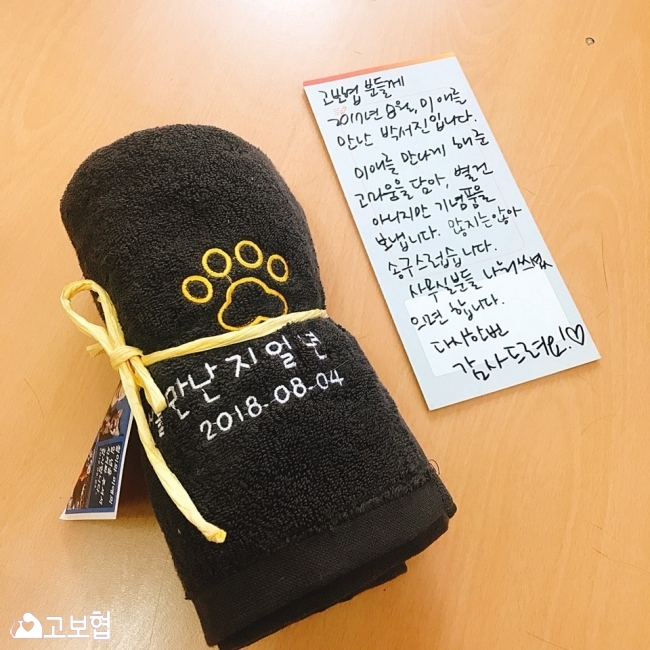 고보협 분들께
2017년 8월, 미애를
만난 박서진입니다.
미애를 만나게 해준
고마움을 담아, 별건
아니지만 기념품을
보냅니다. 많지는않아
송구스럽습니다.
사무실분들 나눠쓰셨으
면 합니다.
다시한번
감사드려요!♡
만난지일년
2018-08-04
고보협